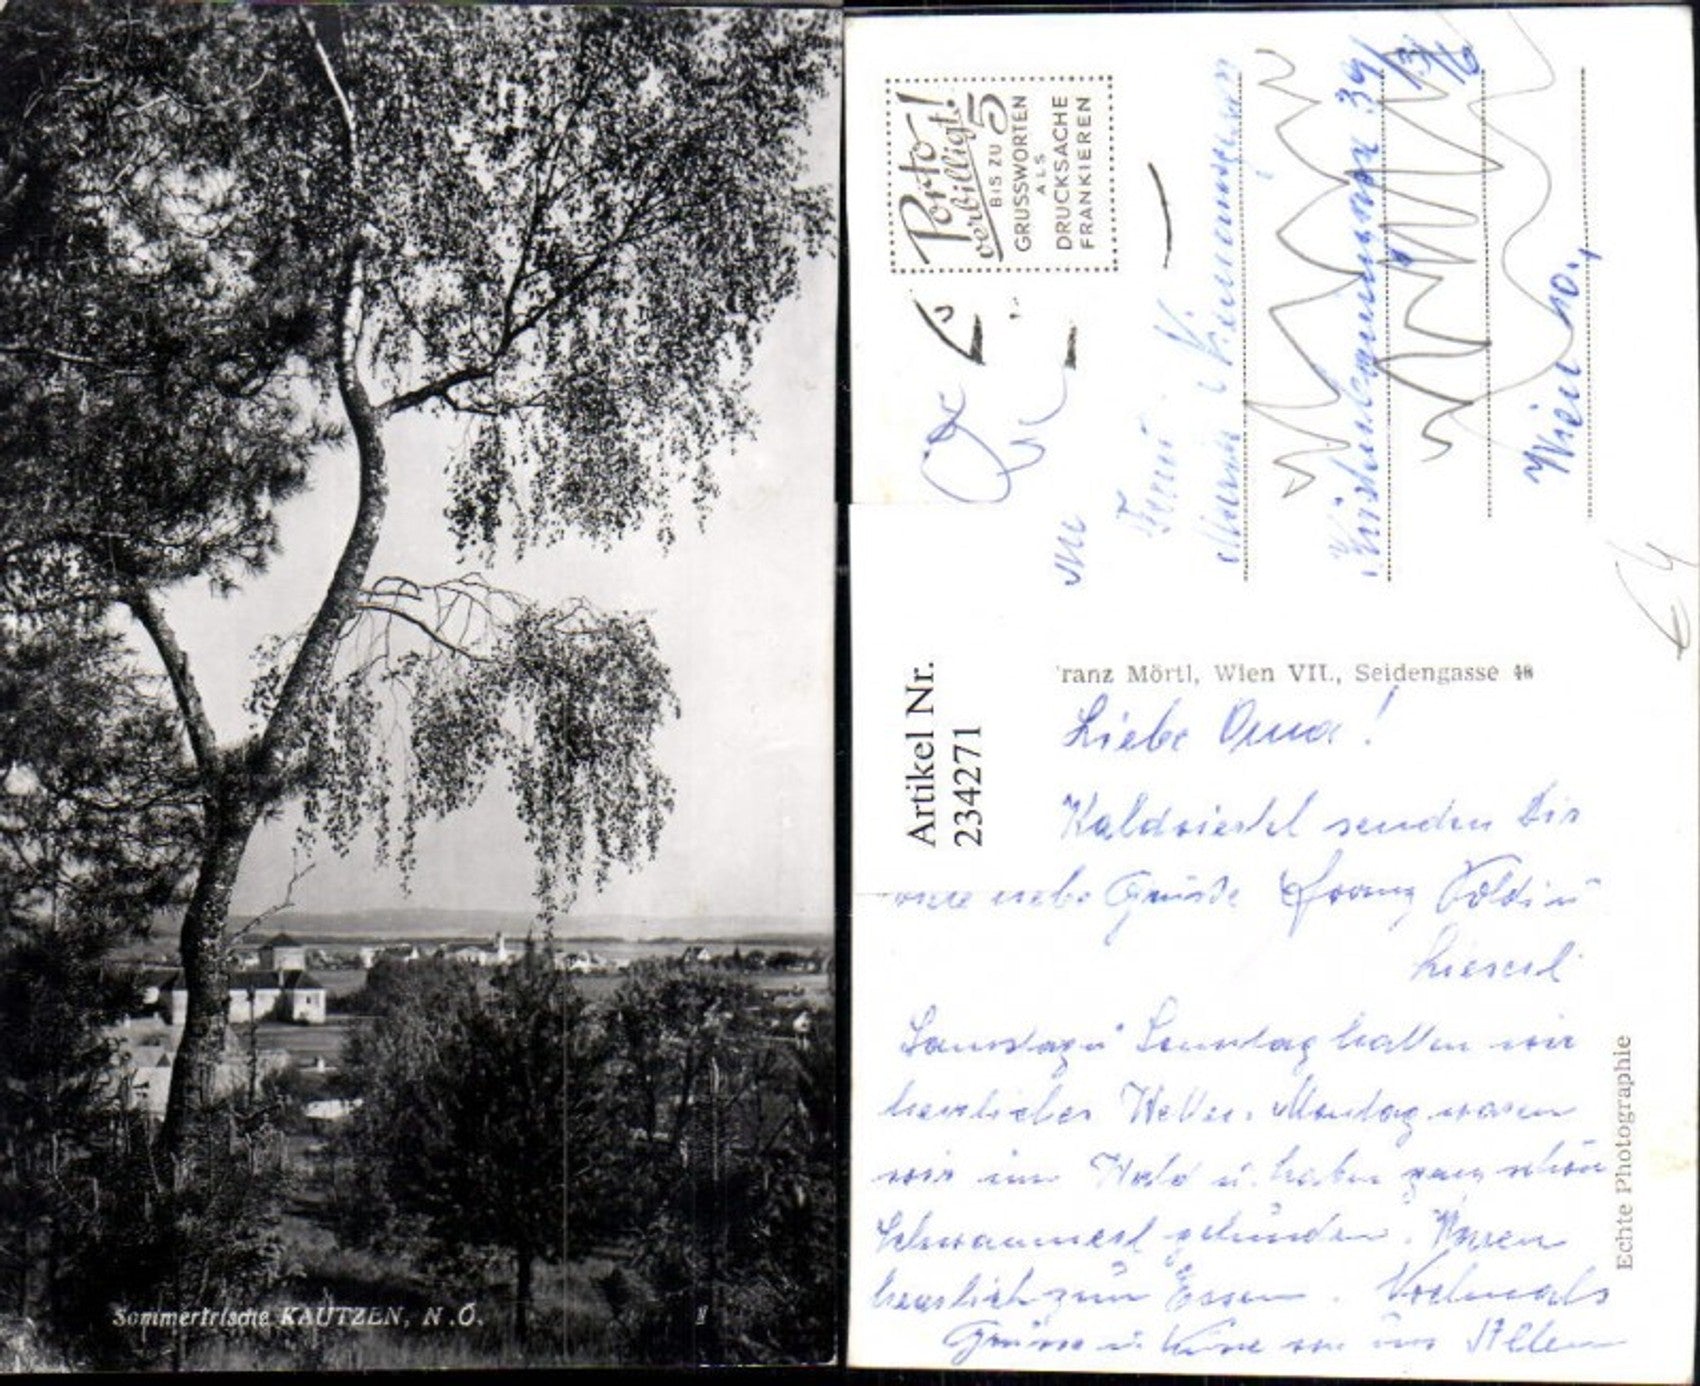 Sommerfrische KAUTZEN, N.Ö.
Porto
verbilligt!
BIS ZU 5
GRUSSWORTEN
ALS
DRUCKSACHE
FRANKIEREN
Frau
Maria
39/
Wien 10.,
Artikel Nr.
234271
ranz Mörtl, Wien VII., Seidengasse 48
Liebe Oma!
senden Dir
liebe Grüsse Franz Poldi u
Lieserl
Samstag u Sonntag hatten wir
herrliches Wetter. Montag waren
wir im Wald u. haben ganz schön
Schwammerl gefunden. Waren
herrlich zum Essen. Vielmals
Grüsse u. Küsse von uns Allen
Echte Photographie